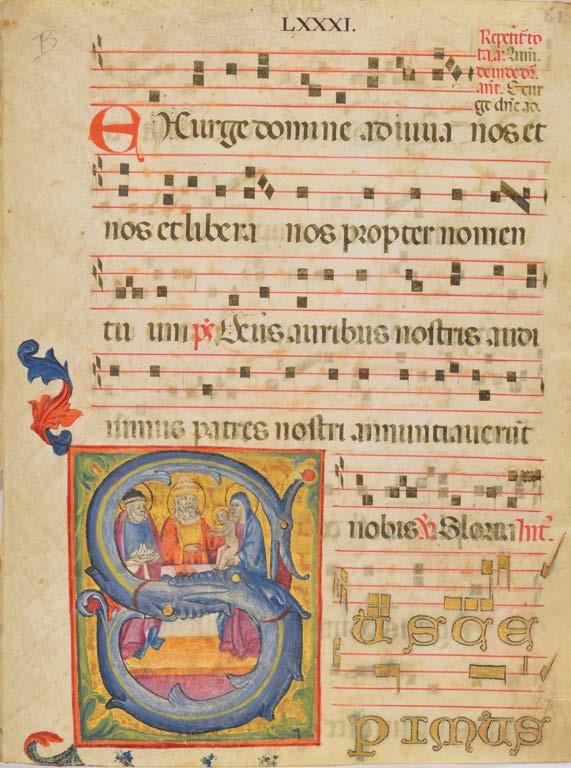 LXXXI.
81
B
Repetit̄ to
ta. a. Aīn.
deinde dr̄.
ant̄. Exur
ge dn̄e ad.
EXurge domine adiuva nos et
nos et libera nos propter nomen
tu um ps̄ Deus auribus nostris audi
uimus patres nostri annunciauerūt
nobis. V̄. Gloria Int̄.
USCE
PIMUS